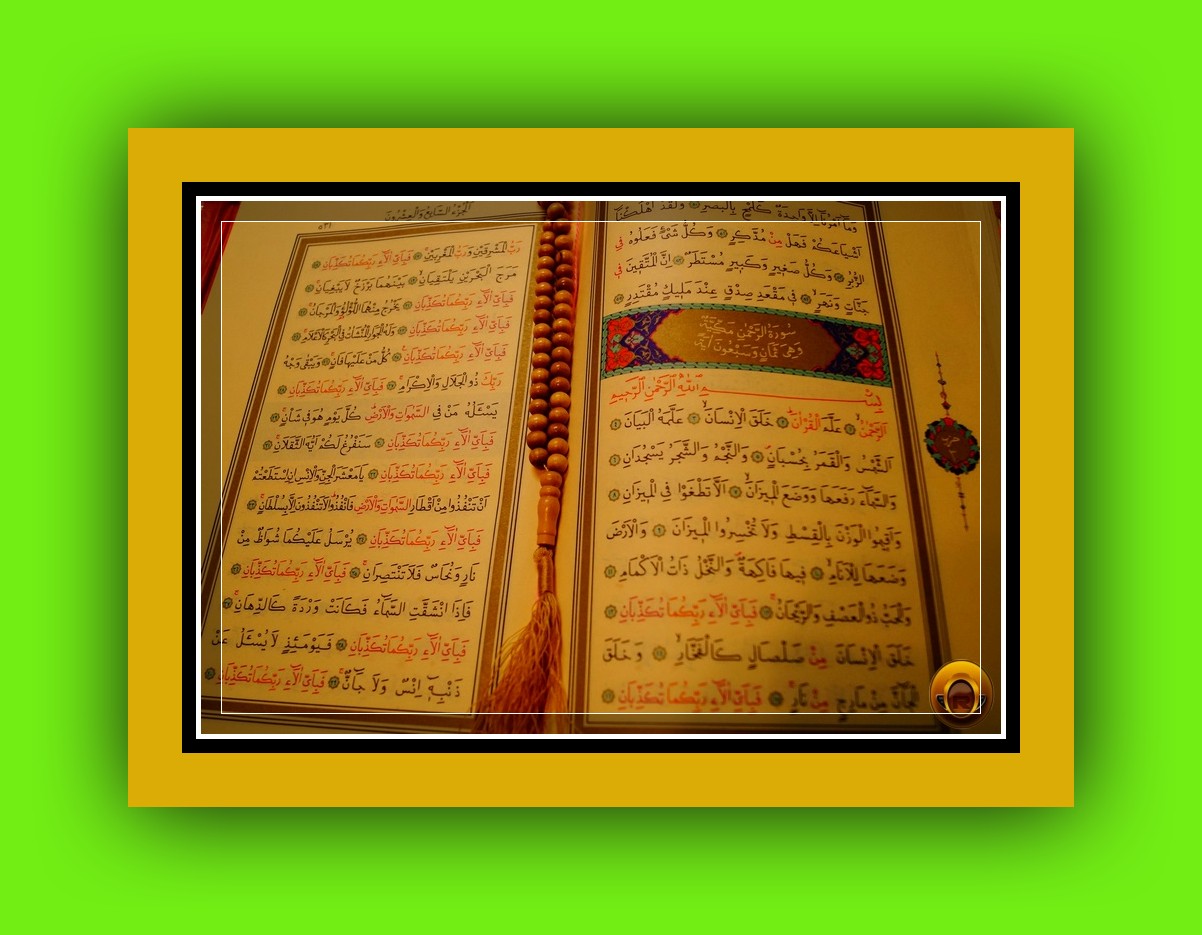 وَمَٓا اَمْرُنَٓا اِلَّا وَاحِدَةٌ كَلَمْحٍ بِالْبَصَرِ ۞ وَلَقَدْ اَهْلَكْنَٓا
اَشْيَاعَكُمْ فَهَلْ مِنْ مُدَّكِرٍ ۞ وَكُلُّ شَيْءٍ فَعَلُوهُ فِي
الزُّبُرِ ۞ وَكُلُّ صَغِيرٍ وَكَبِيرٍ مُسْتَطَرٌ ۞ اِنَّ الْمُتَّقِينَ فِي
جَنَّاتٍ وَنَهَرٍ ۞ فِي مَقْعَدِ صِدْقٍ عِنْدَ مَلِيكٍ مُقْتَدِرٍ ۞
سُورَةُ الرَّحْمٰنِ مَكِّيَّةٌ
وَهِيَ ثَمَانٍ وَسَبْعُونَ اٰيَةً
بِسْمِ اللّٰهِ الرَّحْمٰنِ الرَّحِيمِ
اَلرَّحْمٰنُ ۞ عَلَّمَ الْقُرْاٰنَ ۞ خَلَقَ الْاِنْسَانَ ۞ عَلَّمَهُ الْبَيَانَ ۞
اَلشَّمْسُ وَالْقَمَرُ بِحُسْبَانٍ ۞ وَالنَّجْمُ وَالشَّجَرُ يَسْجُدَانِ ۞
وَالسَّمَٓاءَ رَفَعَهَا وَوَضَعَ الْمِيزَانَ ۞ اَلَّا تَطْغَوْا فِي الْمِيزَانِ ۞
وَاَقِيمُوا الْوَزْنَ بِالْقِسْطِ وَلَا تُخْسِرُوا الْمِيزَانَ ۞ وَالْاَرْضَ
وَضَعَهَا لِلْاَنَامِ ۞ فِيهَا فَاكِهَةٌ وَالنَّخْلُ ذَاتُ الْاَكْمَامِ ۞
وَالْحَبُّ ذُو الْعَصْفِ وَالرَّيْحَانُ ۞ فَبِاَيِّ اٰلَٓاءِ رَبِّكُمَا تُكَذِّبَانِ ۞
خَلَقَ الْاِنْسَانَ مِنْ صَلْصَالٍ كَالْفَخَّارِ ۞ وَخَلَقَ
الْجَٓانَّ مِنْ مَارِجٍ مِنْ نَارٍ ۞ فَبِاَيِّ اٰلَٓاءِ رَبِّكُمَا تُكَذِّبَانِ ۞
حزب
٣
اَلْجُزْءُ السَّابِعُ وَالْعِشْرُونَ
٥٣١
رَبُّ الْمَشْرِقَيْنِ وَرَبُّ الْمَغْرِبَيْنِ ۞ فَبِاَيِّ اٰلَٓاءِ رَبِّكُمَا تُكَذِّبَانِ ۞
مَرَجَ الْبَحْرَيْنِ يَلْتَقِيَانِ ۞ بَيْنَهُمَا بَرْزَخٌ لَا يَبْغِيَانِ ۞
فَبِاَيِّ اٰلَٓاءِ رَبِّكُمَا تُكَذِّبَانِ ۞ يَخْرُجُ مِنْهُمَا اللُّؤْلُؤُ وَالْمَرْجَانُ ۞
فَبِاَيِّ اٰلَٓاءِ رَبِّكُمَا تُكَذِّبَانِ ۞ وَلَهُ الْجَوَارِ الْمُنْشَاٰتُ فِي الْبَحْرِ كَالْاَعْلَامِ ۞
فَبِاَيِّ اٰلَٓاءِ رَبِّكُمَا تُكَذِّبَانِ ۞ كُلُّ مَنْ عَلَيْهَا فَانٍ ۞ وَيَبْقٰى وَجْهُ
رَبِّكَ ذُو الْجَلَالِ وَالْاِكْرَامِ ۞ فَبِاَيِّ اٰلَٓاءِ رَبِّكُمَا تُكَذِّبَانِ ۞
يَسْـَٔلُهُ مَنْ فِي السَّمٰوَاتِ وَالْاَرْضِ كُلَّ يَوْمٍ هُوَ فِي شَأْنٍ ۞
فَبِاَيِّ اٰلَٓاءِ رَبِّكُمَا تُكَذِّبَانِ ۞ سَنَفْرُغُ لَكُمْ اَيُّهَ الثَّقَلَانِ ۞
فَبِاَيِّ اٰلَٓاءِ رَبِّكُمَا تُكَذِّبَانِ ۞ يَا مَعْشَرَ الْجِنِّ وَالْاِنْسِ اِنِ اسْتَطَعْتُمْ
اَنْ تَنْفُذُوا مِنْ اَقْطَارِ السَّمٰوَاتِ وَالْاَرْضِ فَانْفُذُوا لَا تَنْفُذُونَ اِلَّا بِسُلْطَانٍ ۞
فَبِاَيِّ اٰلَٓاءِ رَبِّكُمَا تُكَذِّبَانِ ۞ يُرْسَلُ عَلَيْكُمَا شُوَاظٌ مِنْ
نَارٍ وَنُحَاسٌ فَلَا تَنْتَصِرَانِ ۞ فَبِاَيِّ اٰلَٓاءِ رَبِّكُمَا تُكَذِّبَانِ ۞
فَاِذَا انْشَقَّتِ السَّمَٓاءُ فَكَانَتْ وَرْدَةً كَالدِّهَانِ ۞
فَبِاَيِّ اٰلَٓاءِ رَبِّكُمَا تُكَذِّبَانِ ۞ فَيَوْمَئِذٍ لَا يُسْـَٔلُ عَنْ
ذَنْبِهِ اِنْسٌ وَلَا جَٓانٌّ ۞ فَبِاَيِّ اٰلَٓاءِ رَبِّكُمَا تُكَذِّبَانِ ۞